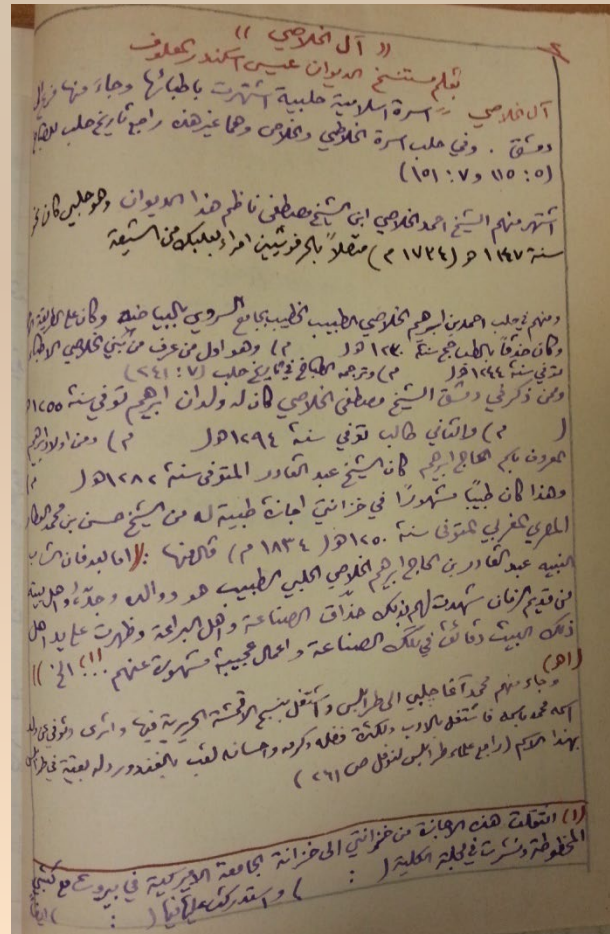 ٢
(( آل الخلاصي ))
بقلم مستنسخ الديوان عيسى اسكندر المعلوف
آل الخلاصي = اسرة اسلامية حلبية اشتهرت باطبائها وجاء منها فرع الى
دمشق . وفي حلب اسرة الخلاصي وهما غير هذه راجع تاريخ حلب للطباخ
(٥ : ١١٥ و ٧ : ١٥١)
اشتهر منهم الشيخ احمد الخلاصي ابن الشيخ مصطفى ناظم هذا الديوان وهو حلبي كان
سنة ١١٤٧ هـ (١٧٣٤ م) متصلاً بالحرفوشيين امراء بعلبك من الشيعة
ومنهم في حلب احمد بن ابرهيم الخلاصي الطبيب الخطيب بجامع السروي بالبياضة وكان على الطريقة
وكان حذقاً بالطب حج سنة ١٢٣٠ هـ ( م) وهو اول من عرف من بني الخلاصي
توفي سنة ١٢٤٤ هـ ( م) وترجمه الطباخ في تاريخ حلب (٧ : ٢٤١)
وممن ذكر في دمشق الشيخ مصطفى الخلاصي كان له ولدان ابرهيم توفي سنة ١٢٥٥ هـ
( م) والثاني طالب توفي سنة ١٢٩٤ هـ ( م) ومن اولاد ابرهيم
المعروف باسم الحاج ابرهيم كان الشيخ عبد القادر المتوفى سنة ١٢٨٢ هـ ( م)
وهذا كان طبيباً مشهوراً في خزانتي اجازة طبية له من الشيخ حسن بن محمد العطار
المصري المغربي المتوفى سنة ١٢٥٠ هـ (١٨٣٤ م) قال منها : (( اما بعد فان الشاب
النبيه عبد القادر بن الحاج ابرهيم الخلاصي الحلبي الطبيب هو ووالده وجده واهل بيته
من قديم الزمان شهدت لهم بذلك حذاق الصناعة واهل البراعة وظهرت على يد اهل
ذلك البيت دقائق في تلك الصناعة واعمال عجيبة مشهورة عنهم !!! الخ ))
(اهـ)
وجاء منهم محمد آغا چلبي الى طرابلس واشتغل بنسج الاقمشة الحريرية فيها واثرى وتوفي عن ولد
اسمه محمد باسمه فاشتغل بالادب ولكثرة فضله وكرمه واحسانه لقب بالغندور وله بقية في طرابلس
بهذا الاسم (راجع علماء طرابلس لنوفل ص ٢٦١)
(١) انتقلت هذه الاجازة من خزانتي الى خزانة الجامعة الاميركية في بيروت مع كتبي
المخطوطة ونشرت في مجلة الكلية ( : ) واستدركت عليها فيها ( : ) ايضاً